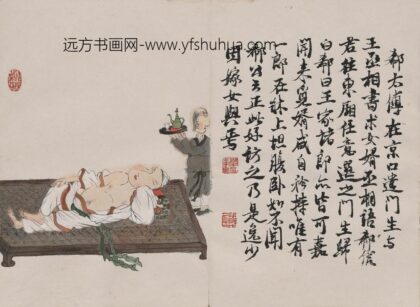 远方书画网-www.yfshuhua.com
郗太傅在京口遣门生与
王丞相書求女婿丞相語郗信
君往東廂任意選之门生歸
白郗曰王家諸郎亦皆可嘉
聞来覓婿咸自矜持唯有
一郎在牀上坦腹卧如不聞
郗公云正此好訪之乃是逸少
因嫁女與焉